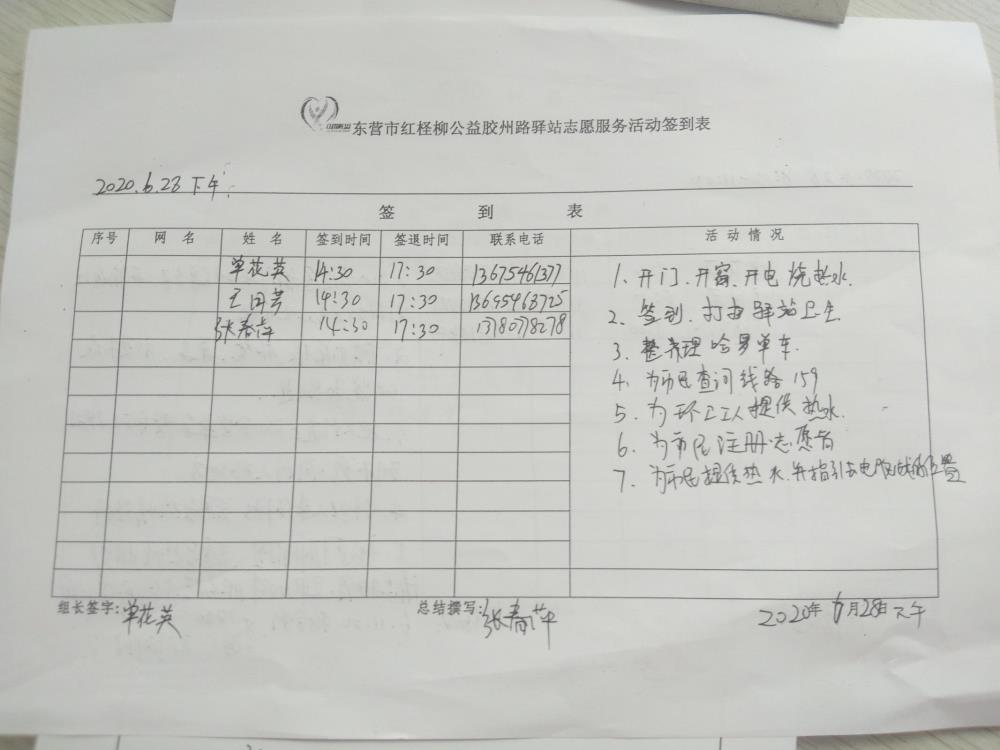 东营市红柽柳公益胶州路驿站志愿服务活动签到表
2020.6.28 下午
签 到 表
序号 网 名 姓 名 签到时间 签退时间 联系电话 活 动 情 况
单花英 14:30 17:30 13675461377
14:30 17:30 13695468725
张春萍 14:30 17:30 13780778278
1、开门、开窗、开电烧热水.
2、签到、打扫驿站卫生
3、整理哈罗单车.
4、为市民查询线路159
5、为环卫工人提供热水.
6、为市民注册志愿者
7、为市民提供热水.并指引去电位置
组长签字:单花英 总结撰写:张春萍 2020年6月28日下午